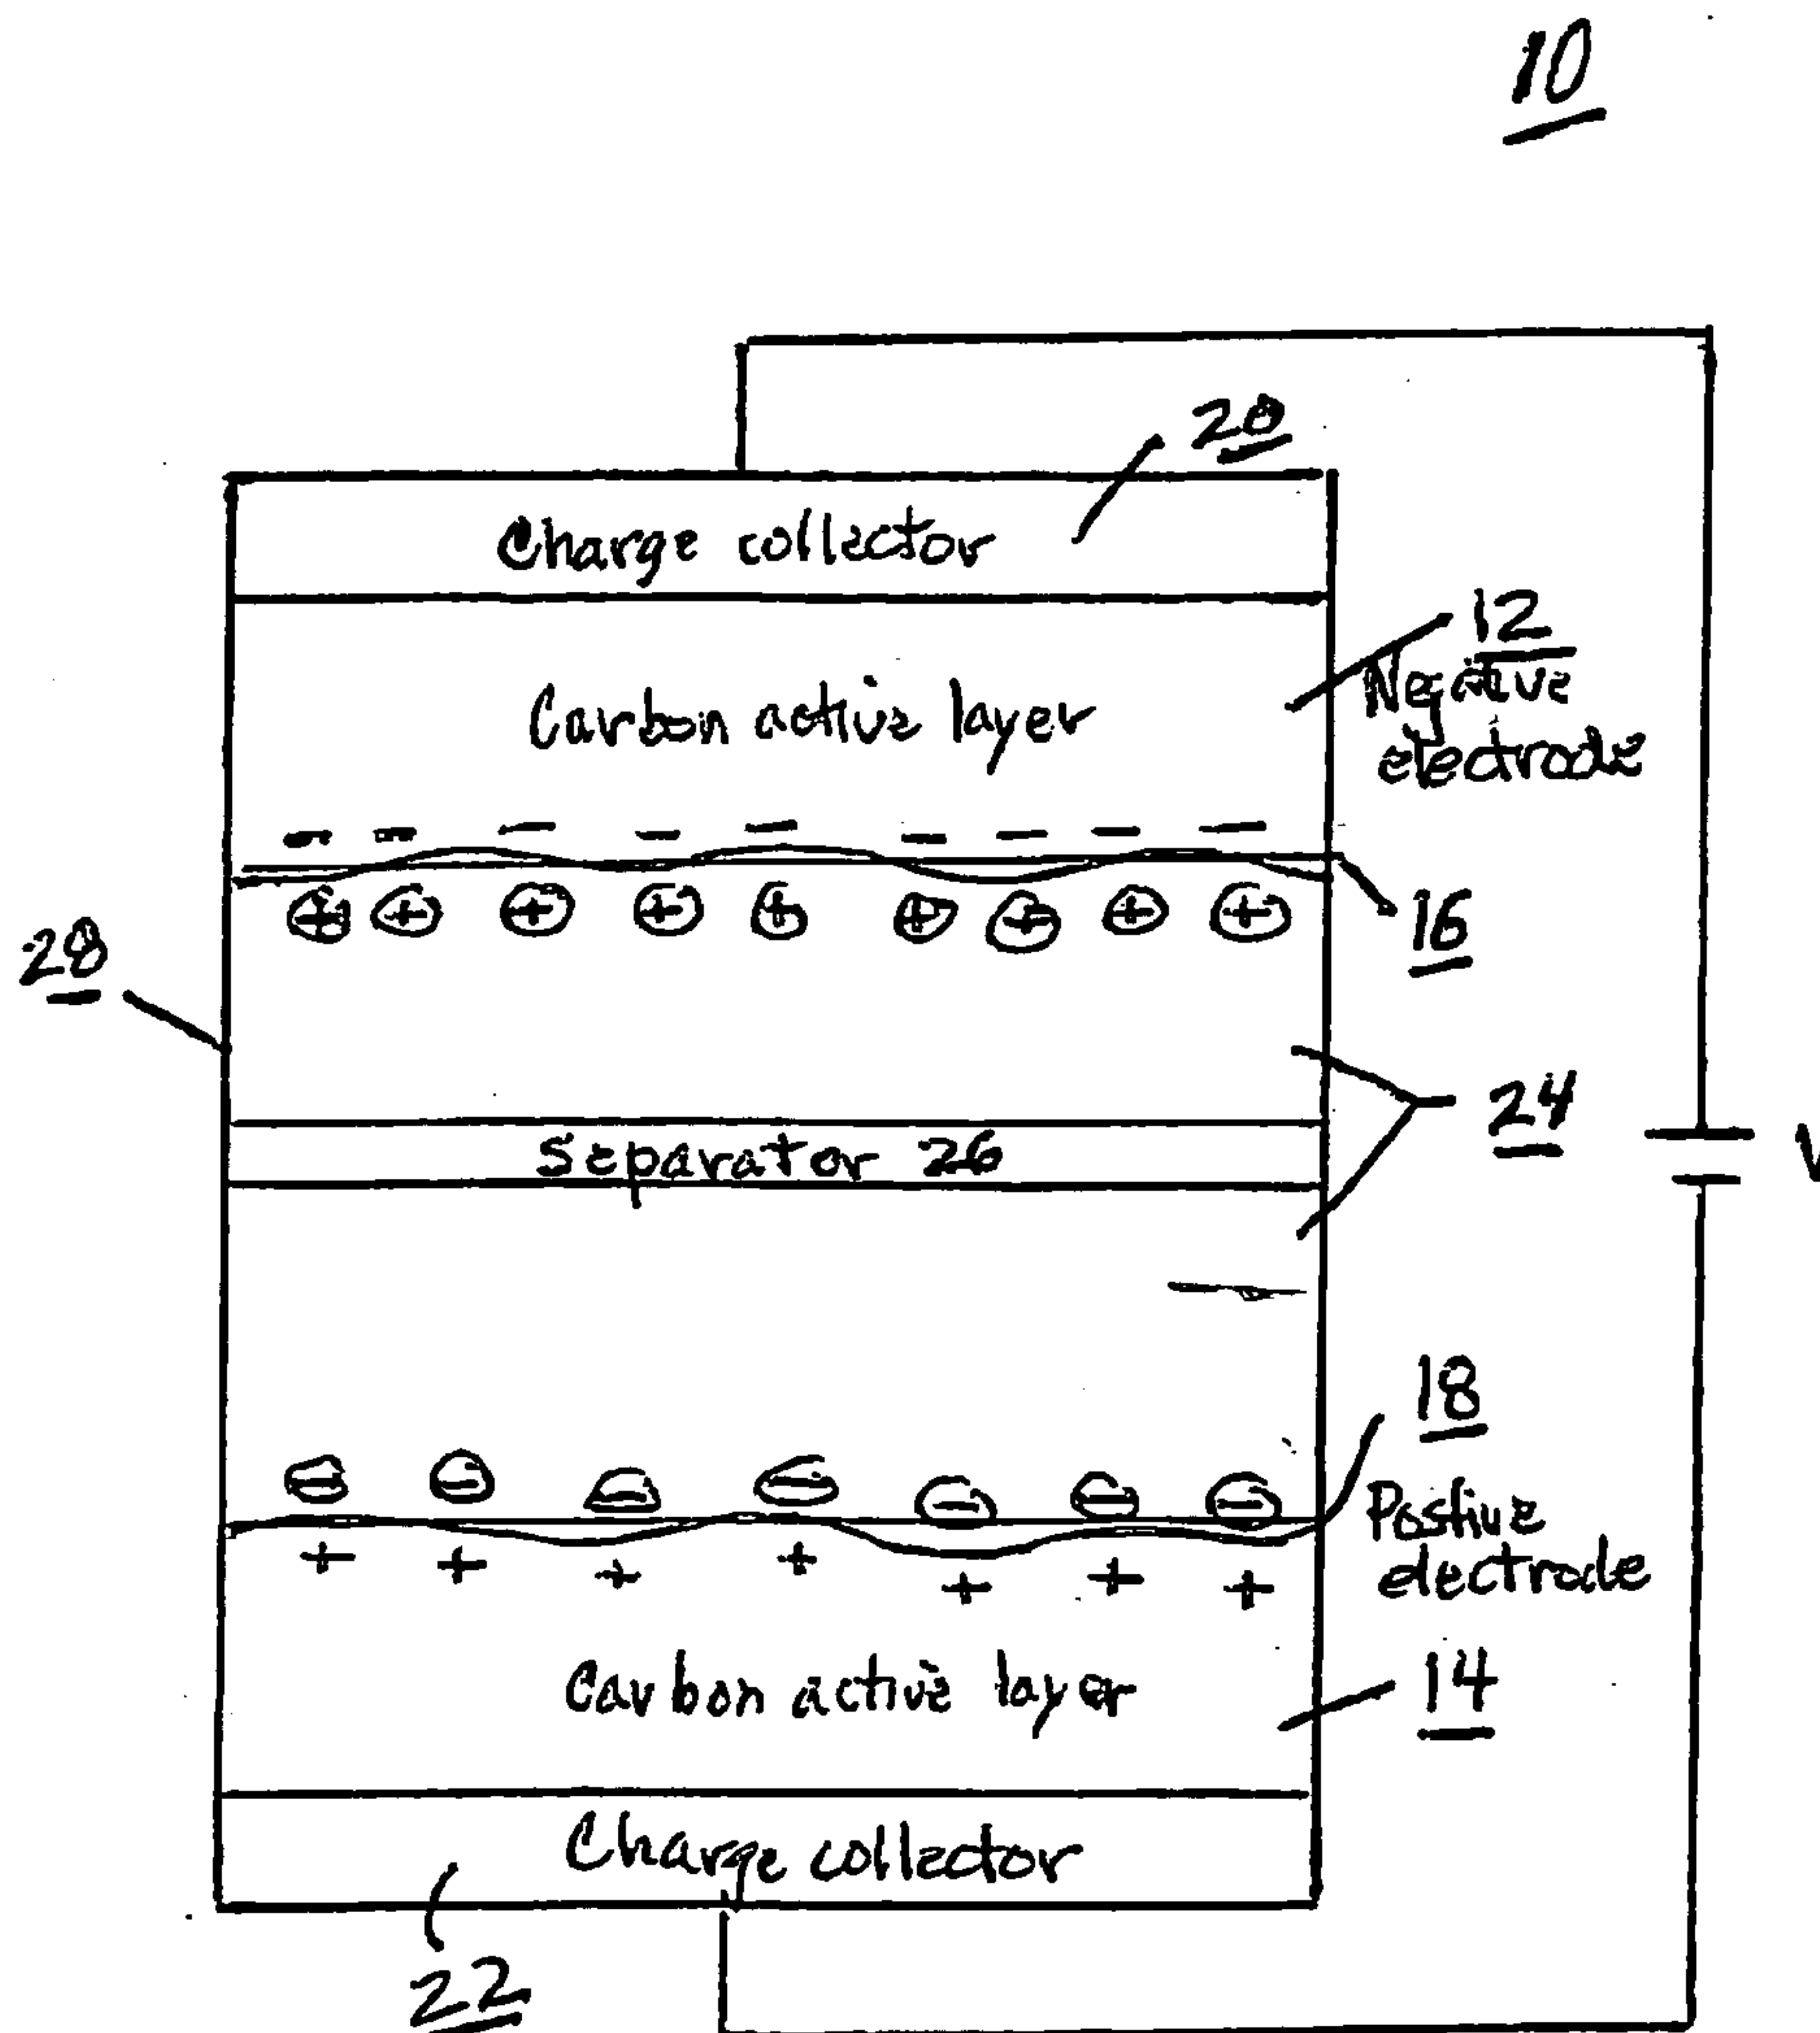 10
20
Charge collector
12
Negative
electrode
Carbon active layer
16
28
24
Separator 26
V
18
Postive
electrode
Carbon active layer
14
Charge collector
22